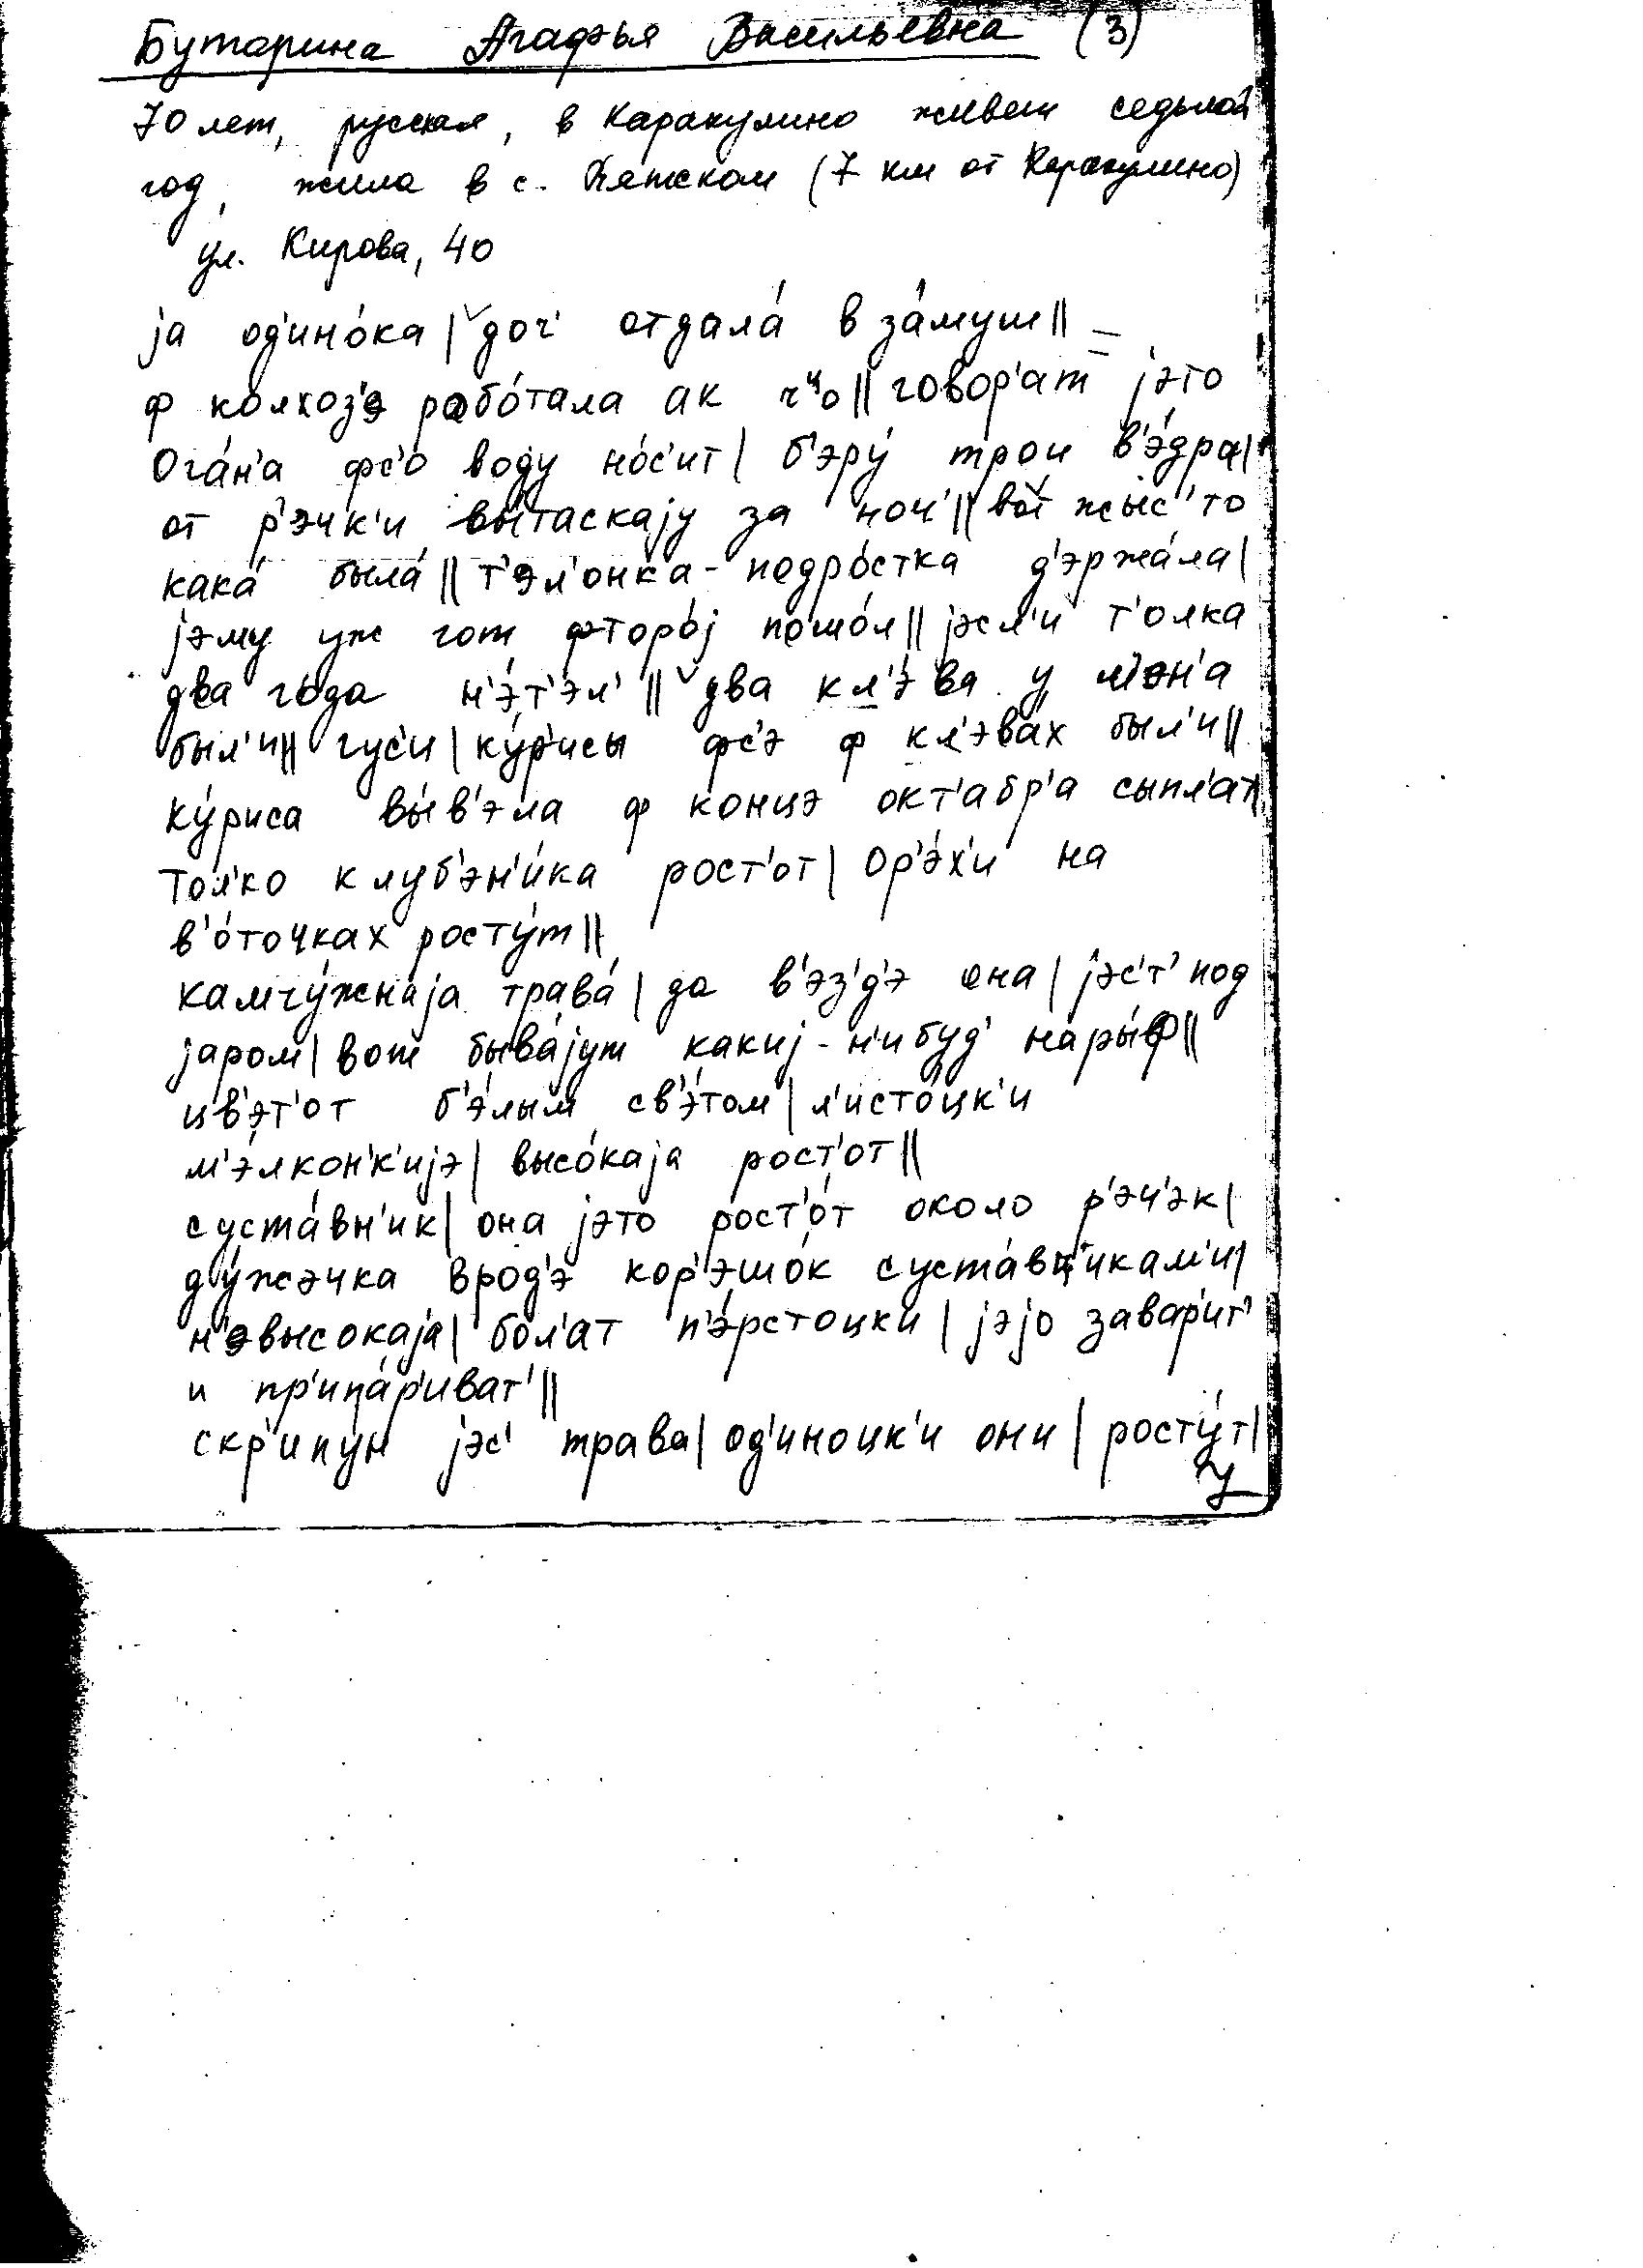 Бутарина Агафья Васильевна (3)
70 лет, русская, в Каракулино живёт седьмой
год, жила в с. Вятском (7 км от Каракулино)
ул. Кирова, 40
ја од'ино́ка | доч' отдала́ в за́муш ||
ф колхоз'э рабо́тала ак ч'ꙸо || говор'ат јэто
Ога́н'а фс'о воду но́с'ит | б'эру́ трои в'э́дра |
от р'эчк'и вы́таскају за ноч' || вот жыс'то
кака́ была́ || т'эл'онка - подро́стка д'эржа́ла |
јэму уж гот фторо́ј пошо́л || јэсл'и т'олка
два го́да н'э́т'эл' || два кл'э́ва у м'эн'а
был'и || гус'и | ку́р'исы фс'э ф кл'эва́х был'и ||
ку́риса вы́в'эла ф концэ окт'абр'а сыпл'ат
тол'ко клуб'эн'и́ка рост'от | ор'э́х'и на
в'о́точках росту́т ||
камчу́жнаја трава́ | да в'эз'д'э она | јэс'т' под
јаром | вот быва́јут какиј - н'ибуд' нары́ф ||
цв'эт'от б'э́лым св'э́том | л'исто́цк'и
м'э́лкон'к'ијэ | высо́каја рост'от ||
суста́вн'ик | она јэто рост'о́т около р'эч'эк |
ду́жэчка врод'э кор'эшо́к суста́вч'икам'и |
н'эвысокаја | бол'ат п'э́рстоцки | јэјо завар'ит'
и пр'ипа́р'иват' ||
скр'ипу́н јэс' трава | од'иноцк'и они | росту́т |